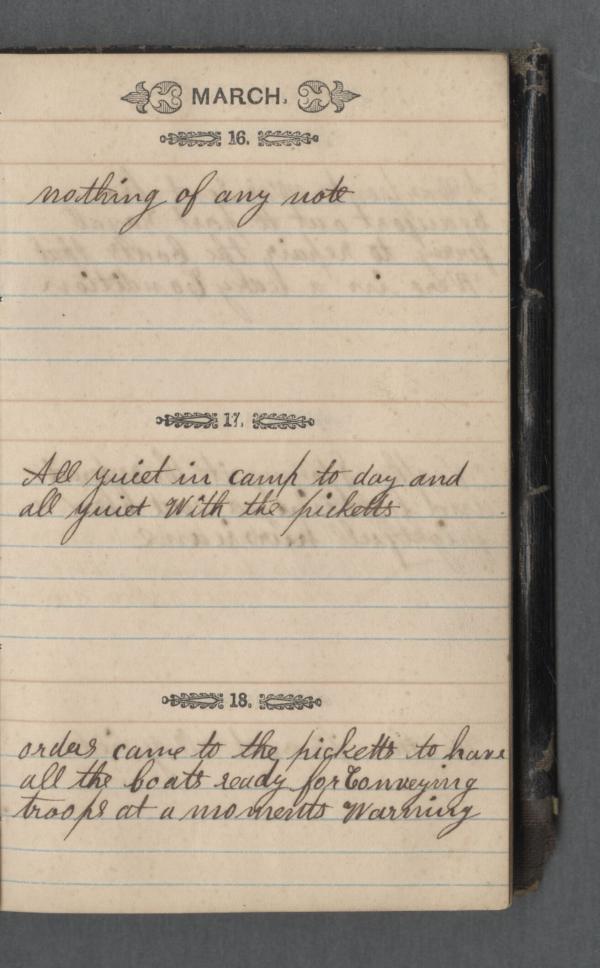 MARCH.
16.
nothing of any note
17.
All quiet in camp to day and
all quiet With the picketts
18.
orders came to the picketts to have
all the boats ready for Conveying
troops at a moments Warning